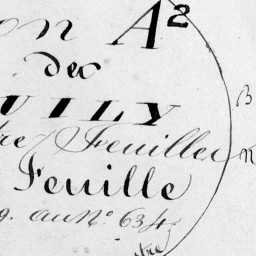 on A2
des
UILY
tre Feuilles
Feuille
9. au N° 634
B